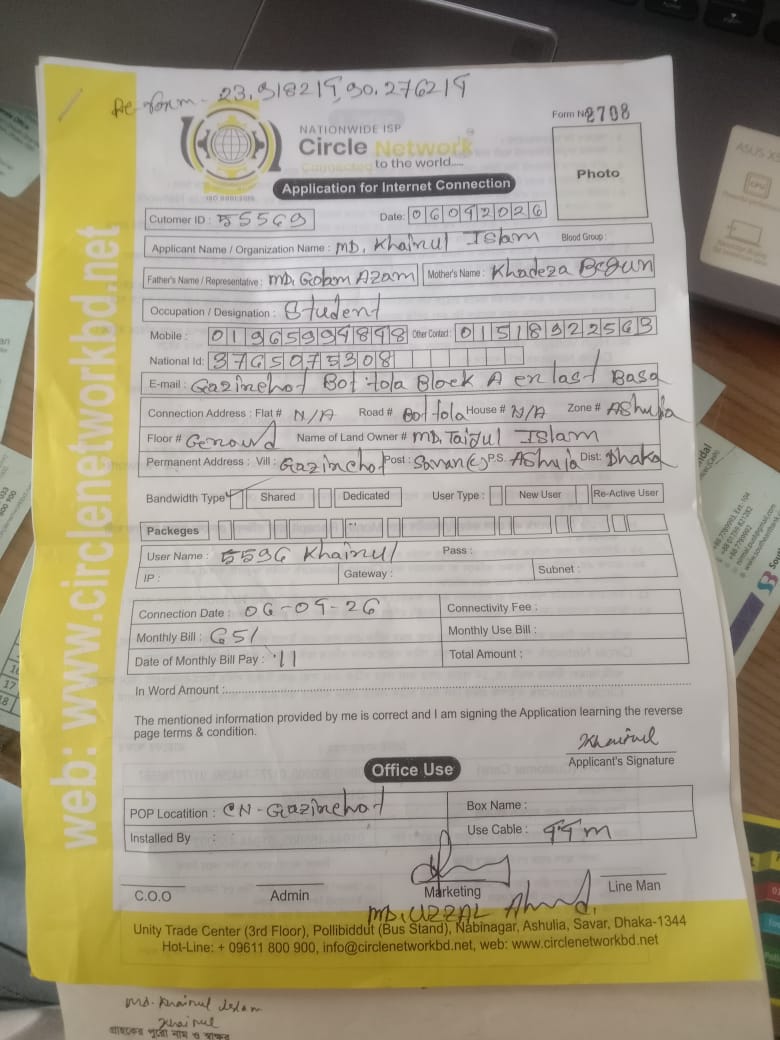 23.918219,90.276219
Form № 2708
NATIONWIDE ISP
Circle Network
Connected to the world....
ISO 9001:2015
Photo
Application for Internet Connection
Cutomer ID : 55569 Date: 06092026
Applicant Name / Organization Name : MD. Khainul Islam Blood Group :
Father's Name / Representative : MD. Golam Azam Mother's Name : Khadeza Begun
Occupation / Designation : Student
Mobile : Other Contact :
National Id: 3765075308
E-mail : Gazinchot Bot tola Block A en last Basa
Connection Address : Flat # N/A Road # Bot tola House # N/A Zone # AShulia
Floor # Genound Name of Land Owner # MD. Taijul Islam
Permanent Address : Vill : Gazinchot Post : Savar P.S. AShulia Dist: Dhaka
Bandwidth Type Shared Dedicated User Type : New User Re-Active User
Packeges
User Name : 5596 Khainul Pass :
IP : Gateway : Subnet :
Connection Date : 06-09-26 Connectivity Fee :
Monthly Bill : 651 Monthly Use Bill :
Date of Monthly Bill Pay : 11 Total Amount :
In Word Amount :
The mentioned information provided by me is correct and I am signing the Application learning the reverse
page terms & condition.
Khainul
Applicant's Signature
Office Use
POP Locatition : CN-Gazinchot Box Name :
Installed By : Use Cable : 99m
C.O.O Admin Marketing Line Man
MD. UZZAL Ahmed.
Unity Trade Center (3rd Floor), Pollibiddut (Bus Stand), Nabinagar, Ashulia, Savar, Dhaka-1344
Hot-Line: + 09611 800 900, info@circlenetworkbd.net, web: www.circlenetworkbd.net
web: www.circlenetworkbd.net
Md. Khainul Islam
Khainul
গ্রাহকের পুরো নাম ও স্বাক্ষর
ASUS
CPU